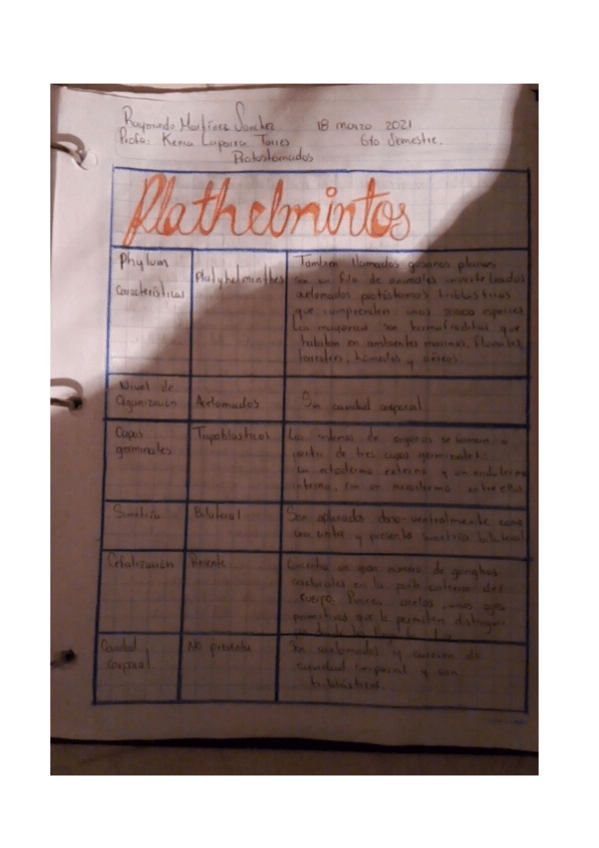 Raymundo Martínez Sanchez 18 marzo 2021
Profa: Kenia Laparra Torres 6to Semestre.
Protostomados
Plathelmintos
Phylum
Características
Platyhelminthes
También llamados gusanos planos
son un filo de animales invertebrados
acelomados protóstomos triblásticos
que comprenden unas 20000 especies.
La mayoría son hermafroditas que
habitan en ambientes marinos, fluviales,
terrestres, húmedos y aéreos
Nivel de
Organización
Acelomados
Sin cavidad corporal
Capas
germinales
Tripoblasticos
Los sistemas de órganos se forman a
partir de tres capas germinales:
un ectodermo externo y un endodermo
interno, con un mesodermo entre ellos
Simetría
Bilateral
Son aplanados dorso-ventralmente como
una cinta y presenta simetría bilateral
Cefalización
Presente
un gran número de ganglios
cerebrales en la parte anterior del
cuerpo. Poseen ocelos, unos ojos
primitivos que le permiten distinguir
Cavidad
corporal
No presenta
Son acelomados y carecen de
cavidad corporal y son
triblásticos.